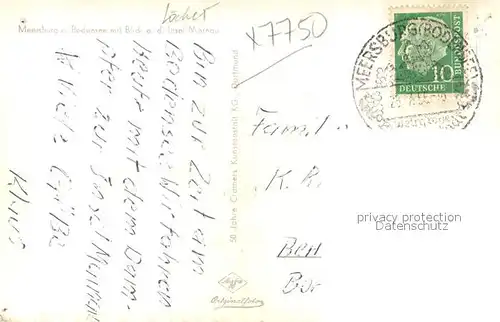 Locher
x7750
Meersburg a. Bodensee mit Blick a. d. Insel Mainau
Bin zur Zeit am
Bodensee. Wir fahren
Heute mit dem Dam-
pfer zur Insel Mainau
Viele Grüße
Klaus
50 Jahre Cramers Kunstanstalt KG., Dortmund
Agfa
Originalfoto
MEERSBURG (BODENSEE)
DEUTSCHE
BUNDESPOST
10
Famil
K. R.
Ber
Bor
privacy protection
Datenschutz